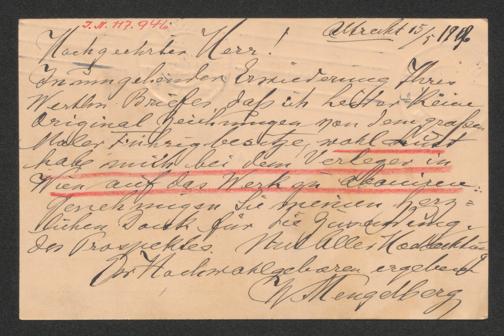 J.N. 117.946
Utrecht 15/5 19
Hochgeehrter Herr!
In umgehender Erwiederung Ihres
Werthen Briefes, daß ich leider keine
Original Zeichnungen von dem großen
Maler Führig besitze, wohl
habe mich bei dem Verleger in
Wien auf das Werk zu aboniren.
Genehmigen Sie meinen herz=
lichen Dank für die Zusendung
des Prospektes. Mit Aller Hochachtung
Ew Hochwohlgeboren ergebenst
W Mengelberg